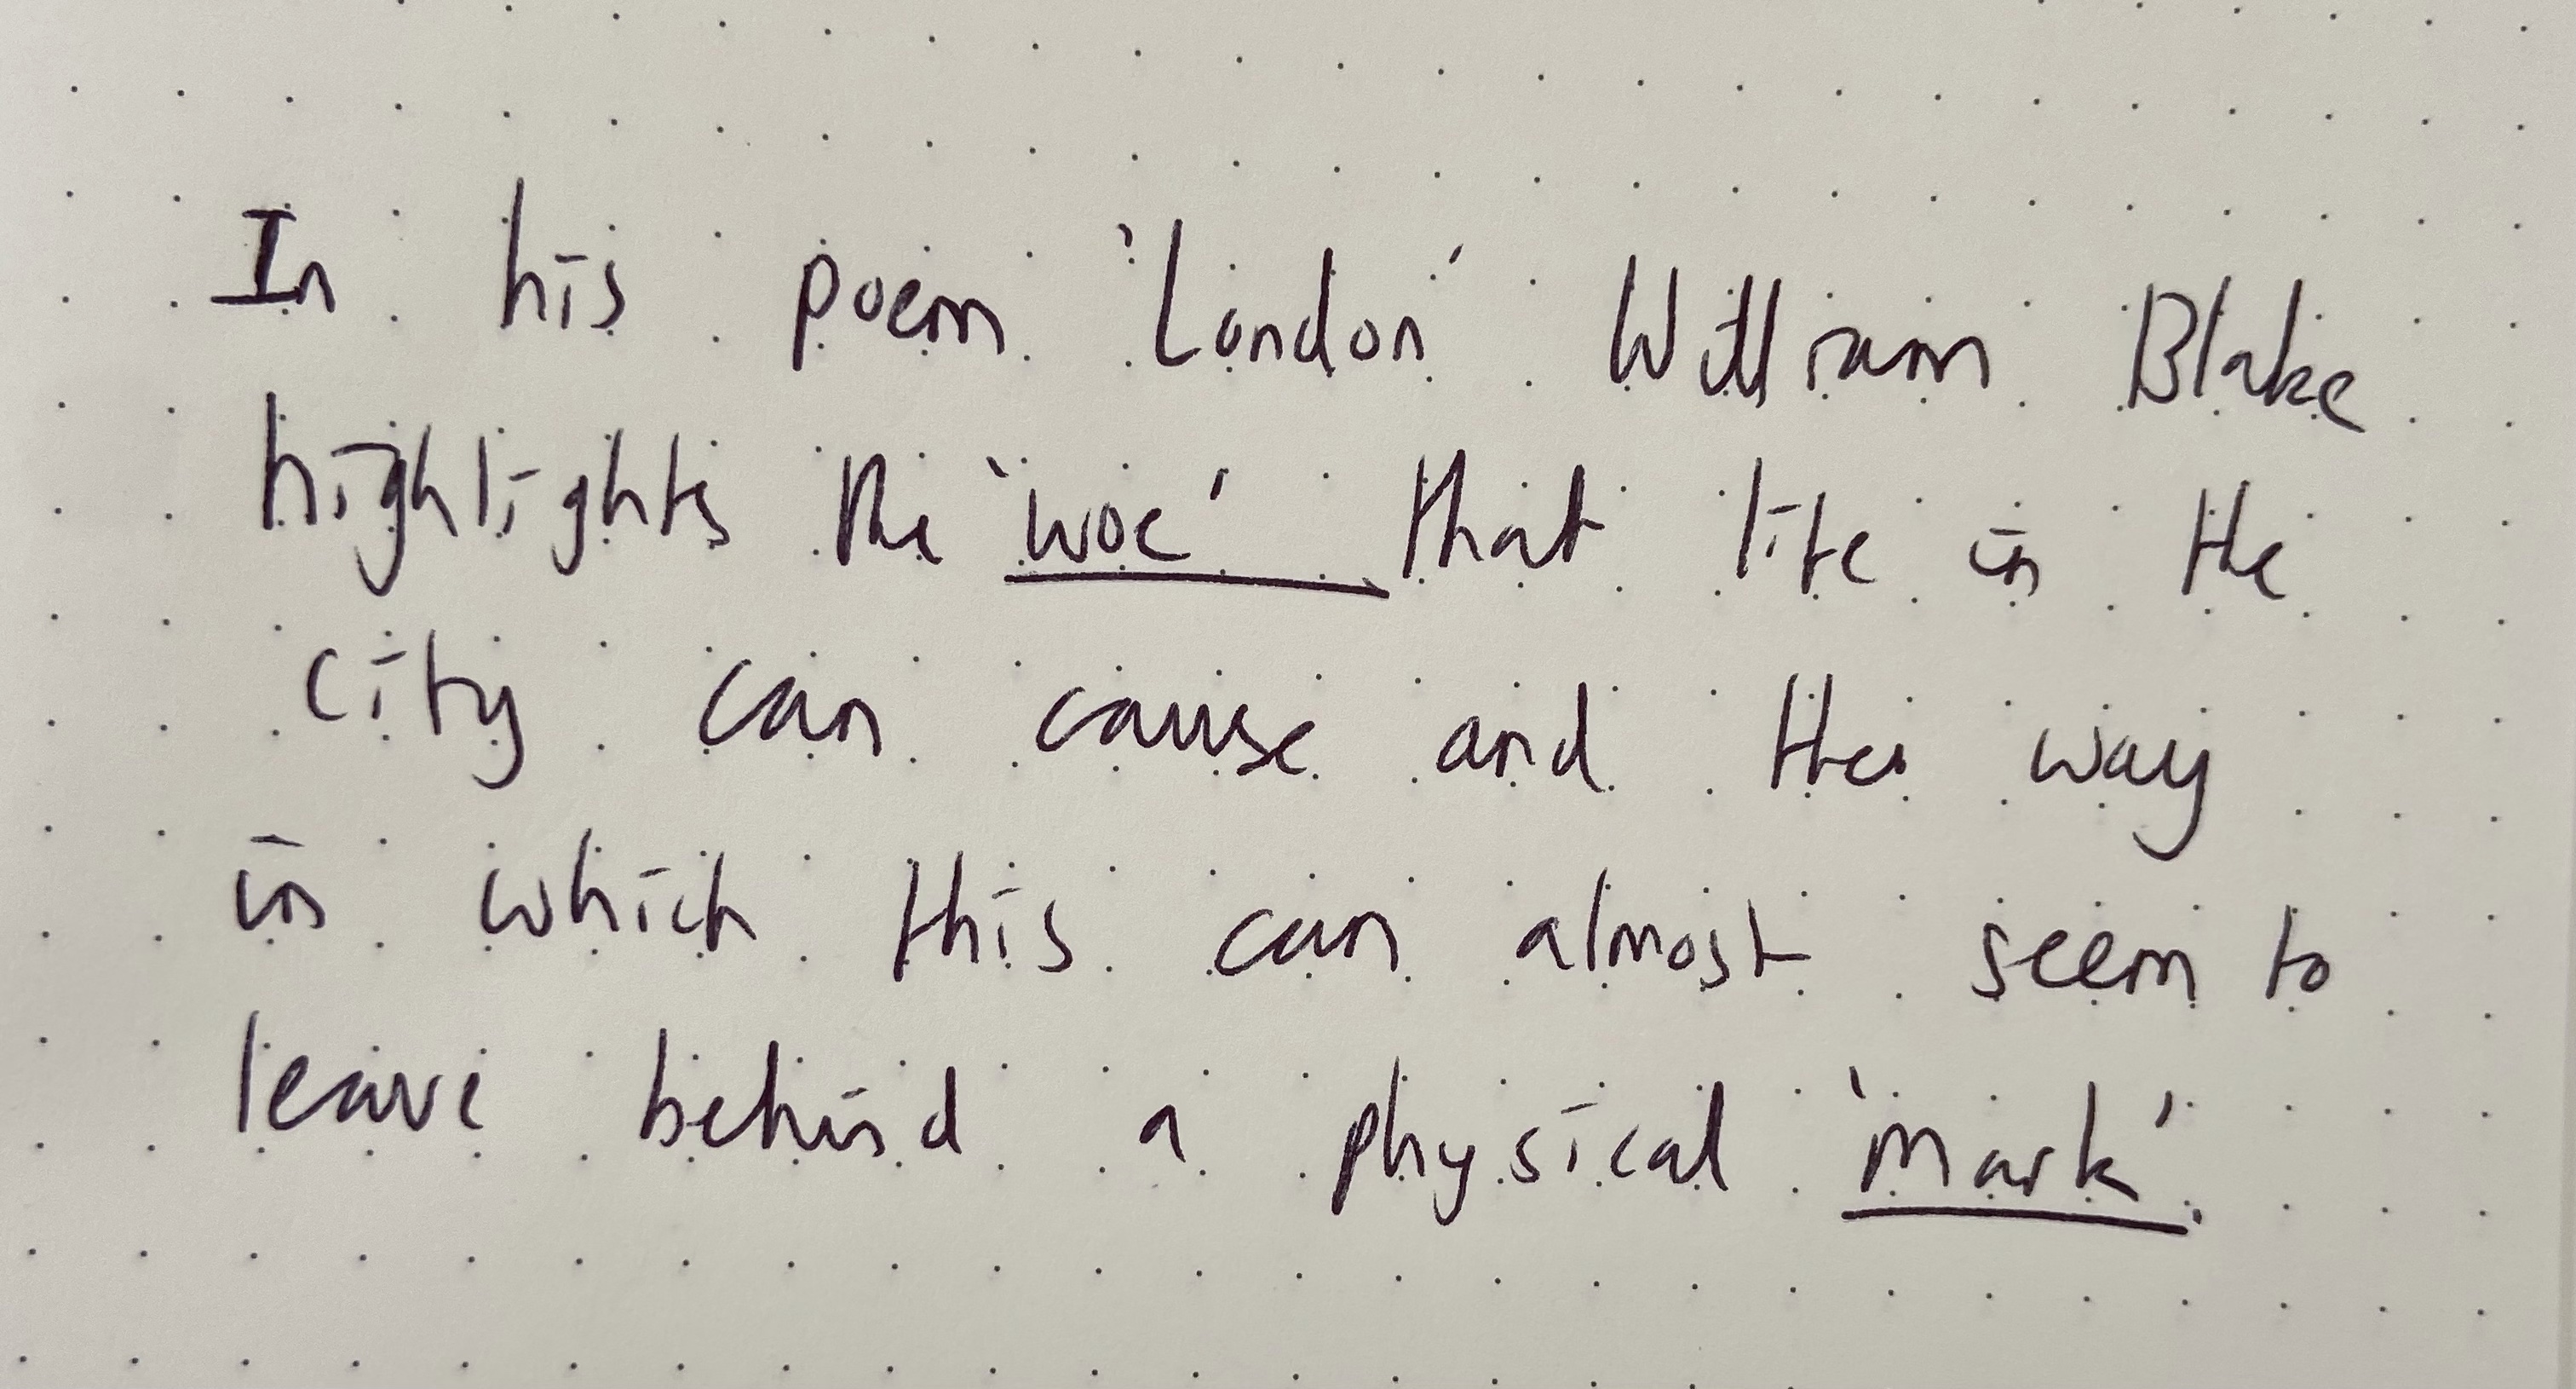 In his poem 'London' William Blake
highlights the 'woe' that life in the
city can cause and the way
in which this can almost seem to
leave behind a physical 'mark'.